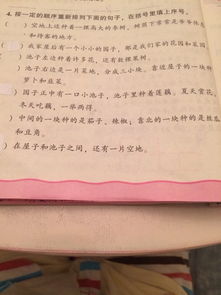 4. 按一定的顺序重新排列下面的句子，在括号里填上序号。
( )空地上这种着一棵高大的枣树，树荫下常常是爷爷休息
和待客的地方。
( )我家屋后有一个小小的园子，那是我们家的花园和菜园
)池子左边种着许多花，还有数棵果树。
)池子右边是一片菜地，分成三小块。靠近屋子的一块种
萝卜和韭菜。
)园子正中有一口小池子，池子里种着莲藕。夏天赏花，
冬天吃藕，一举两得。
)中间的一块种的是茄子、辣椒；靠北的一块种的是丝瓜
和豆角。
)在屋子和池子之间，还有一片空地。